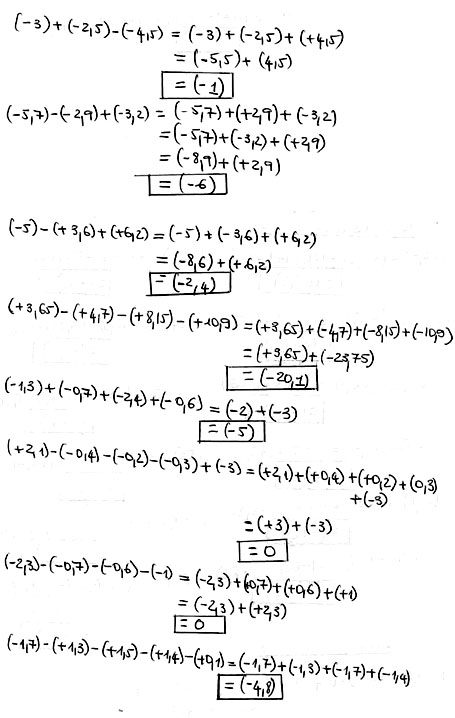 (-3)+(-2,5)-(-4,5) = (-3)+(-2,5)+(+4,5)
= (-5,5)+(4,5)
= (-1)
(-5,7)-(-2,9)+(-3,2) = (-5,7)+(+2,9)+(-3,2)
= (-5,7)+(-3,2)+(+2,9)
= (-8,9)+(+2,9)
= (-6)
(-5)-(+3,6)+(+6,2) = (-5)+(-3,6)+(+6,2)
= (-8,6)+(+6,2)
= (-2,4)
(+3,65)-(+4,7)-(+8,15)-(+10,9) = (+3,65)+(-4,7)+(-8,15)+(-10,9)
= (+3,65)+(-23,75)
= (-20,1)
(-1,3)+(-0,7)+(-2,4)+(-0,6) = (-2)+(-3)
= (-5)
(+2,1)-(-0,4)-(-0,2)-(-0,3)+(-3) = (+2,1)+(+0,4)+(+0,2)+(0,3)
+(-3)
= (+3)+(-3)
= 0
(-2,3)-(-0,7)-(-0,6)-(-1) = (-2,3)+(+0,7)+(+0,6)+(+1)
= (-2,3)+(+2,3)
= 0
(-1,7)-(+1,3)-(+1,5)-(+1,4)-(+0,1) = (-1,7)+(-1,3)+(-1,7)+(-1,4)
= (-4,8)